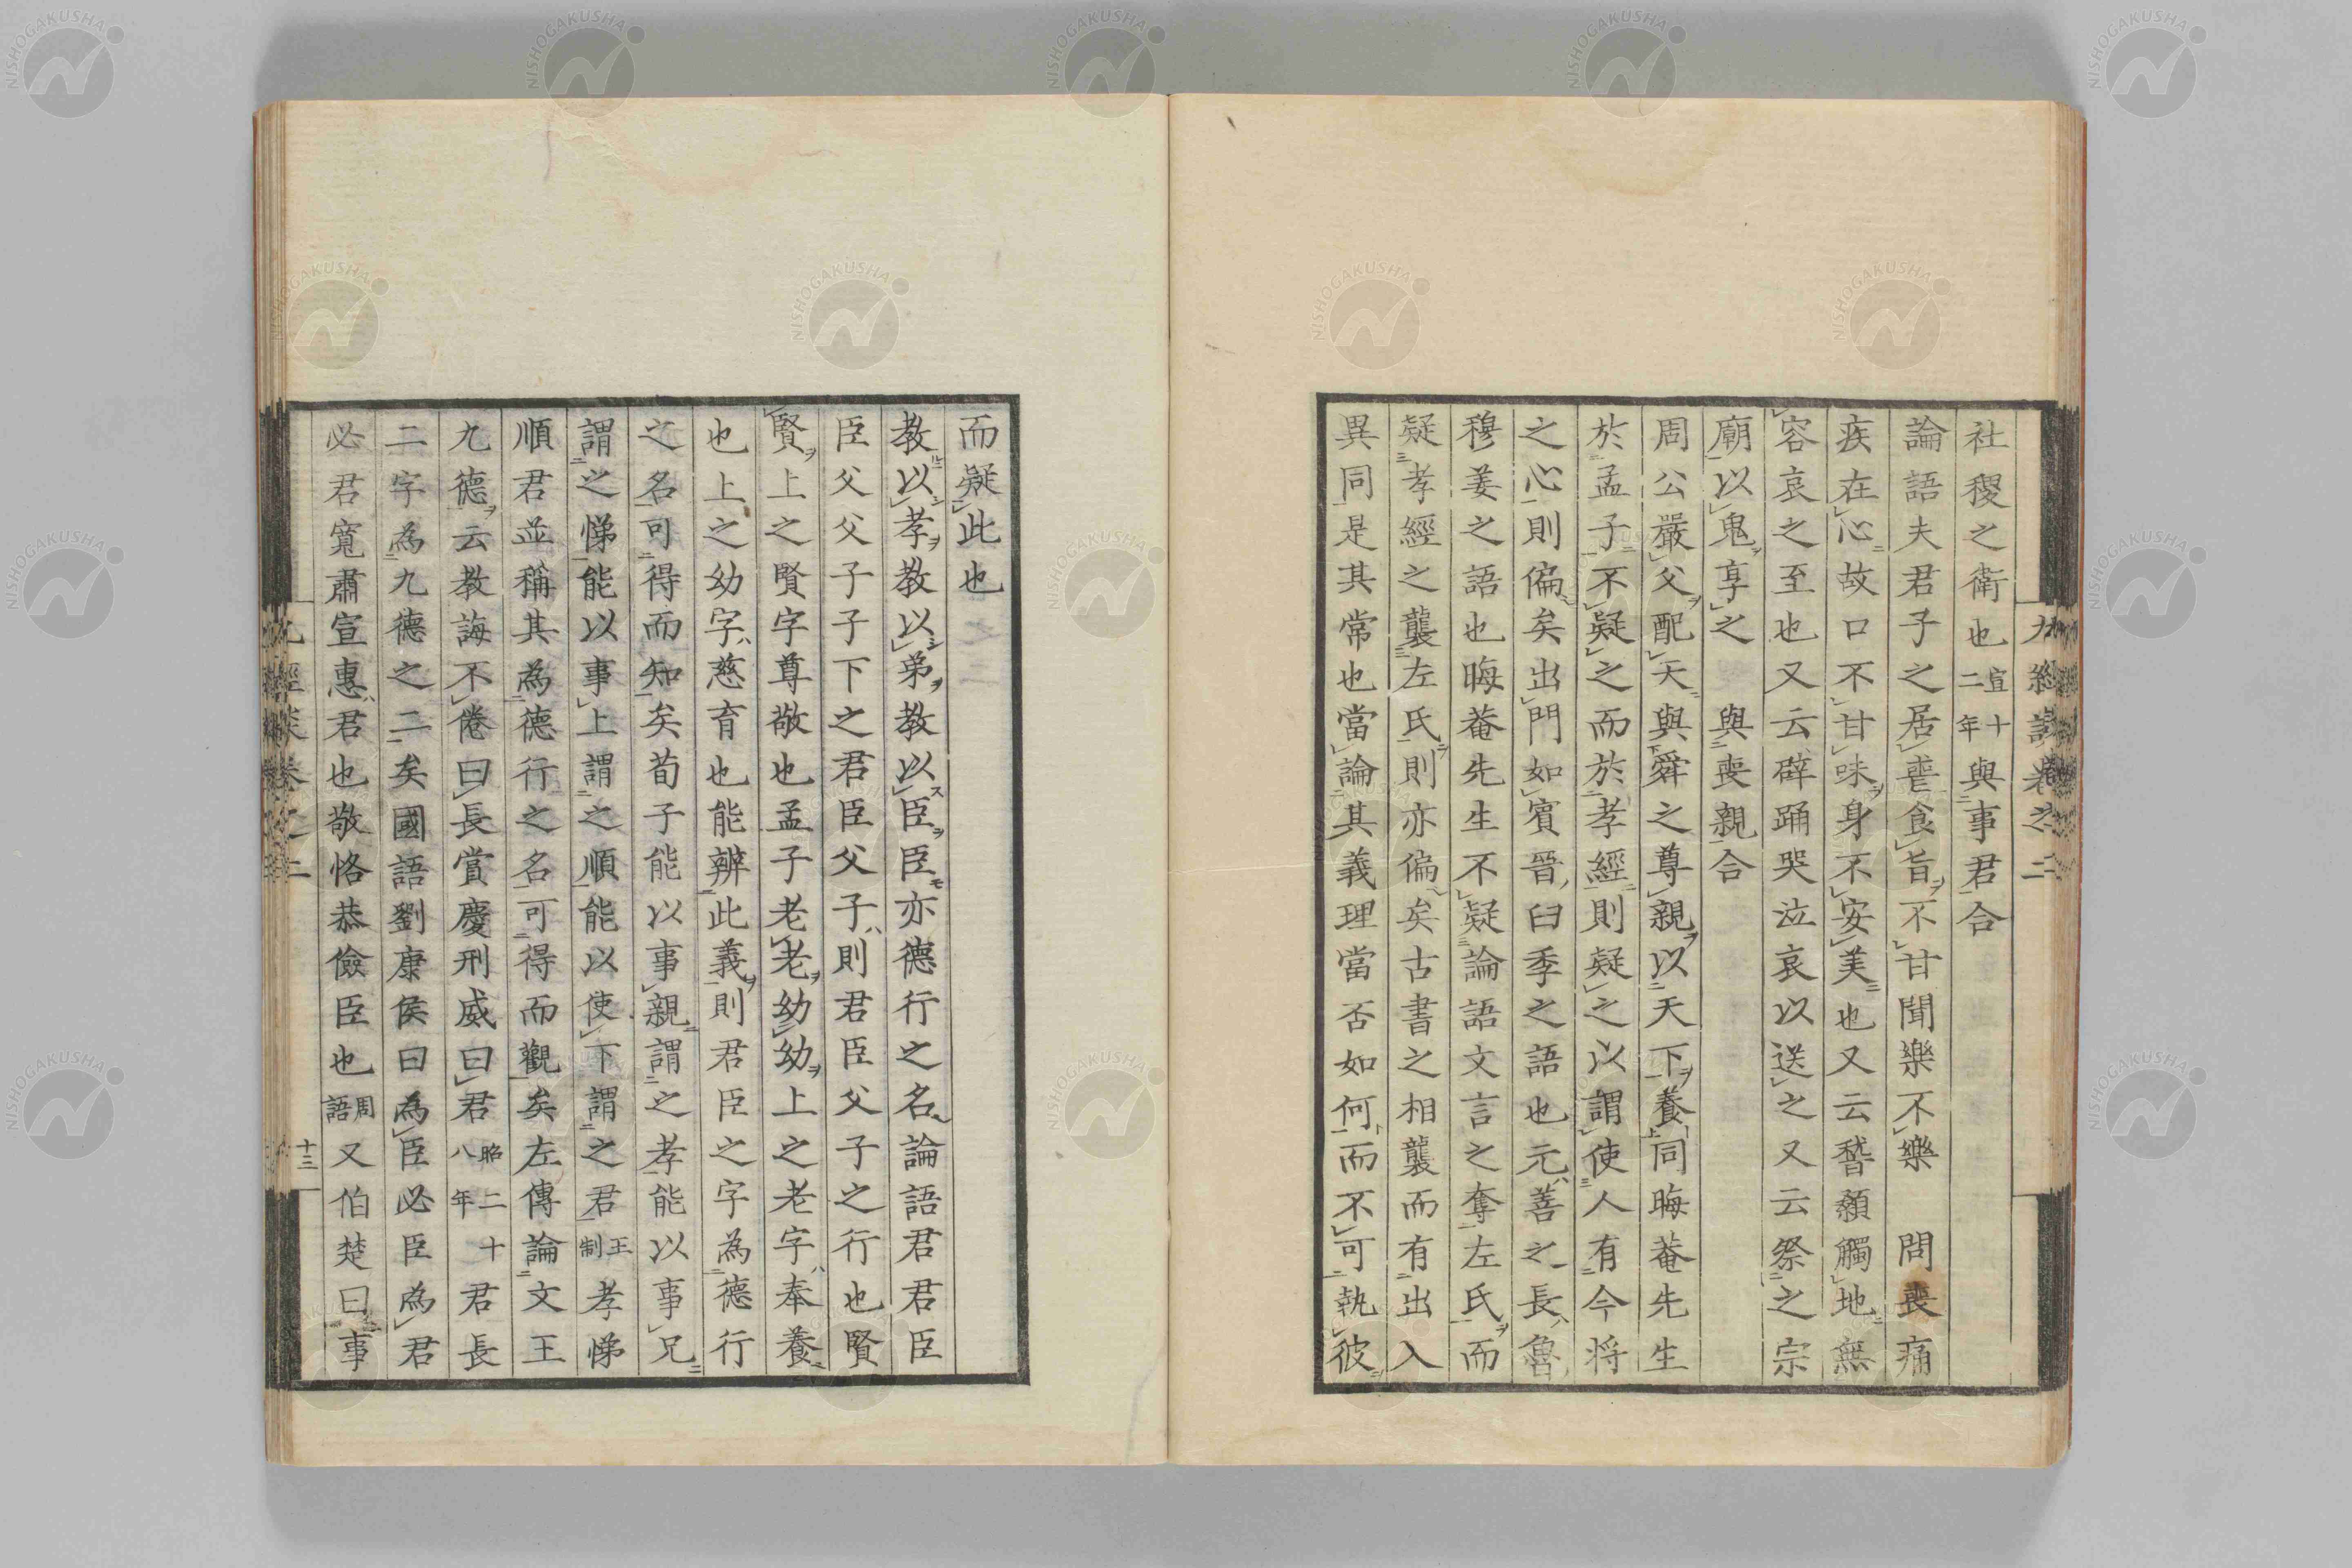 社稷之衛也宣十二年與事君合
論語夫君子之居喪食旨不甘聞樂不樂　問喪痛
疾在心故口不甘味身不安美也又云稽顙觸地無
容哀之至也又云辟踊哭泣哀以送之又云祭之宗
廟以鬼享之　與喪親合
周公嚴父配天與舜之尊親以天下養同晦菴先生
於孟子不疑之而於孝經則疑之以謂使人有今将
之心則偏矣出門如賓晉臼季之語也元善之長魯
穆姜之語也晦菴先生不疑論語文言之奪左氏而
疑孝經之襲左氏則亦偏矣古書之相襲而有出入
異同是其常也當論其義理當否如何而不可執彼
而疑此也
教以孝教以弟教以臣臣亦德行之名論語君君臣
臣父父子子下之君臣父子則君臣父子之行也賢
賢上之賢字尊敬也孟子老老幼幼上之老字奉養
也上之幼字慈育也能辨此義則君臣之字為德行
之名可得而知矣荀子能以事親謂之孝能以事兄
謂之悌能以事上謂之順能以使下謂之君王制孝悌
順君並稱其為德行之名可得而觀矣左傳論文王
九德云教誨不倦曰長賞慶刑威曰君昭二十八年君長
二字為九德之二矣國語劉康侯曰為臣必臣為君
必君寬肅宣惠君也敬恪恭儉臣也周語又伯楚曰事
九經談卷之二
九經談卷之二
十三
NISHOGAKUSHA